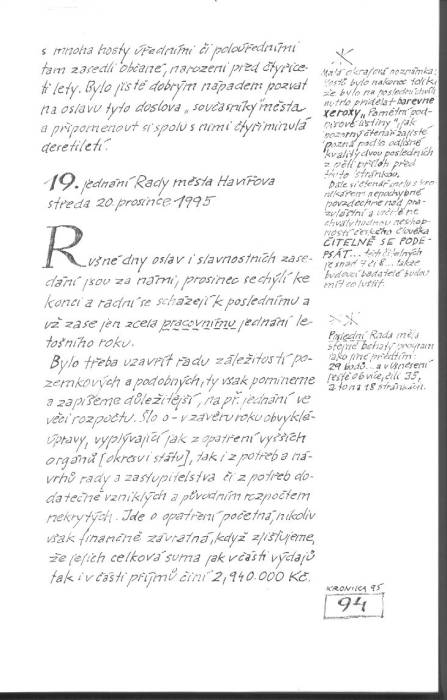 s mnoha hosty úředními či poloúředními
tam zasedli občané, narození před čtyřice-
ti lety. Bylo jistě dobrým nápadem pozvat
na oslavu tyto doslova „současníky“ města
a připomenout si spolu s nimi čtyři minulá
desetiletí.
19. jednání Rady města Havířova
středa 20. prosince 1995
Rušné dny oslav i slavnostních zase-
dání jsou za námi, prosinec se chýlí ke
konci a radní se scházejí k poslednímu a
už zase jen zcela pracovnímu jednání le-
tošního roku.
Bylo třeba uzavřít řadu záležitostí po-
zemkových a podobných, ty však pomineme
a zapíšeme důležitější, např. jednání ve
věci rozpočtu. Šlo o - v závěru roku obvyklé-
úpravy, vyplývající jak z opatření vyšších
orgánů [okresu i státu], tak i z potřeb a ná-
vrhů rady a zastupitelstva či z potřeb do-
datečně vzniklých a původním rozpočtem
nekrytých. Jde o opatření početná, nikoliv
však finančně závratná, když zjišťujeme,
že jejich celková suma jak v části výdajů
tak i v části příjmů činí 2,940.000 Kč.
Malá okrajová poznámka:
hostů bylo nakonec tolik,
že bylo na poslední chvíli
nutno přidělat barevné
xeroxy „Pamětní pod-
pisové listiny“, jak
pozorný čtenář zajisté
pozná podle odlišné
kvality dvou posledních
z pěti příloh před
touto stránkou.
Dále si čtenář spolu s kro-
nikářem nepochybně
povzdechne nad
zvláštní a určitě ne
chvályhodnou neschop-
ností českého člověka
ČITELNĚ SE PODE-
PSAT... těch čitelných
je snad 7 či 8... takže
budoucí badatelé budou
mít co luštit.
Poslední Rada měla
stejně bohatý program
jako jiné předtím:
29 bodů... a v usnesení
ještě o 6 více, čili 35,
a to na 18 stránkách.
KRONIKA 95
94